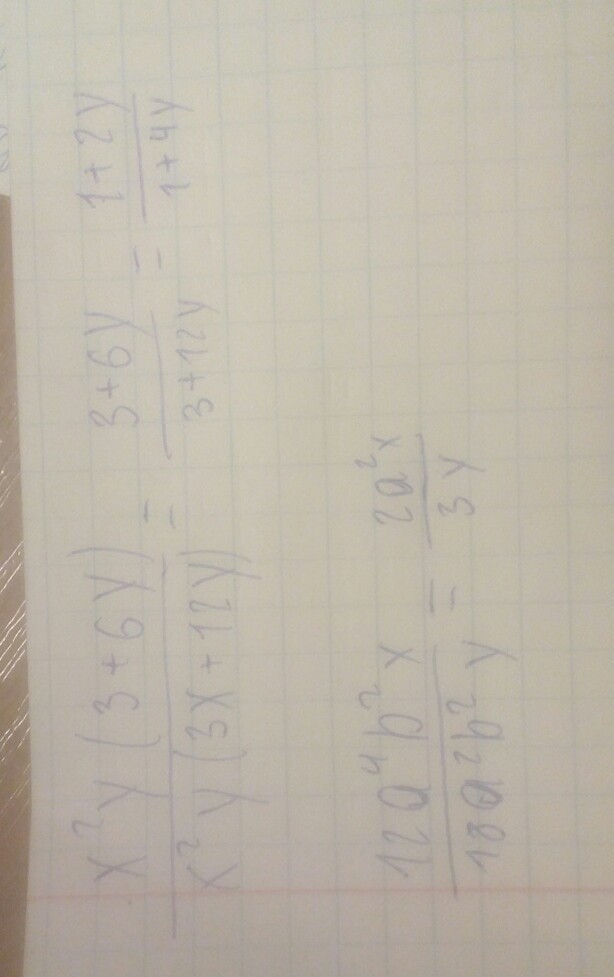 x²y(3+6y) / x²y(3x+12y) = 3+6y / 3+12y = 1+2y / 1+4y
12a⁴b²x / 18a²b²y = 2a²x / 3y